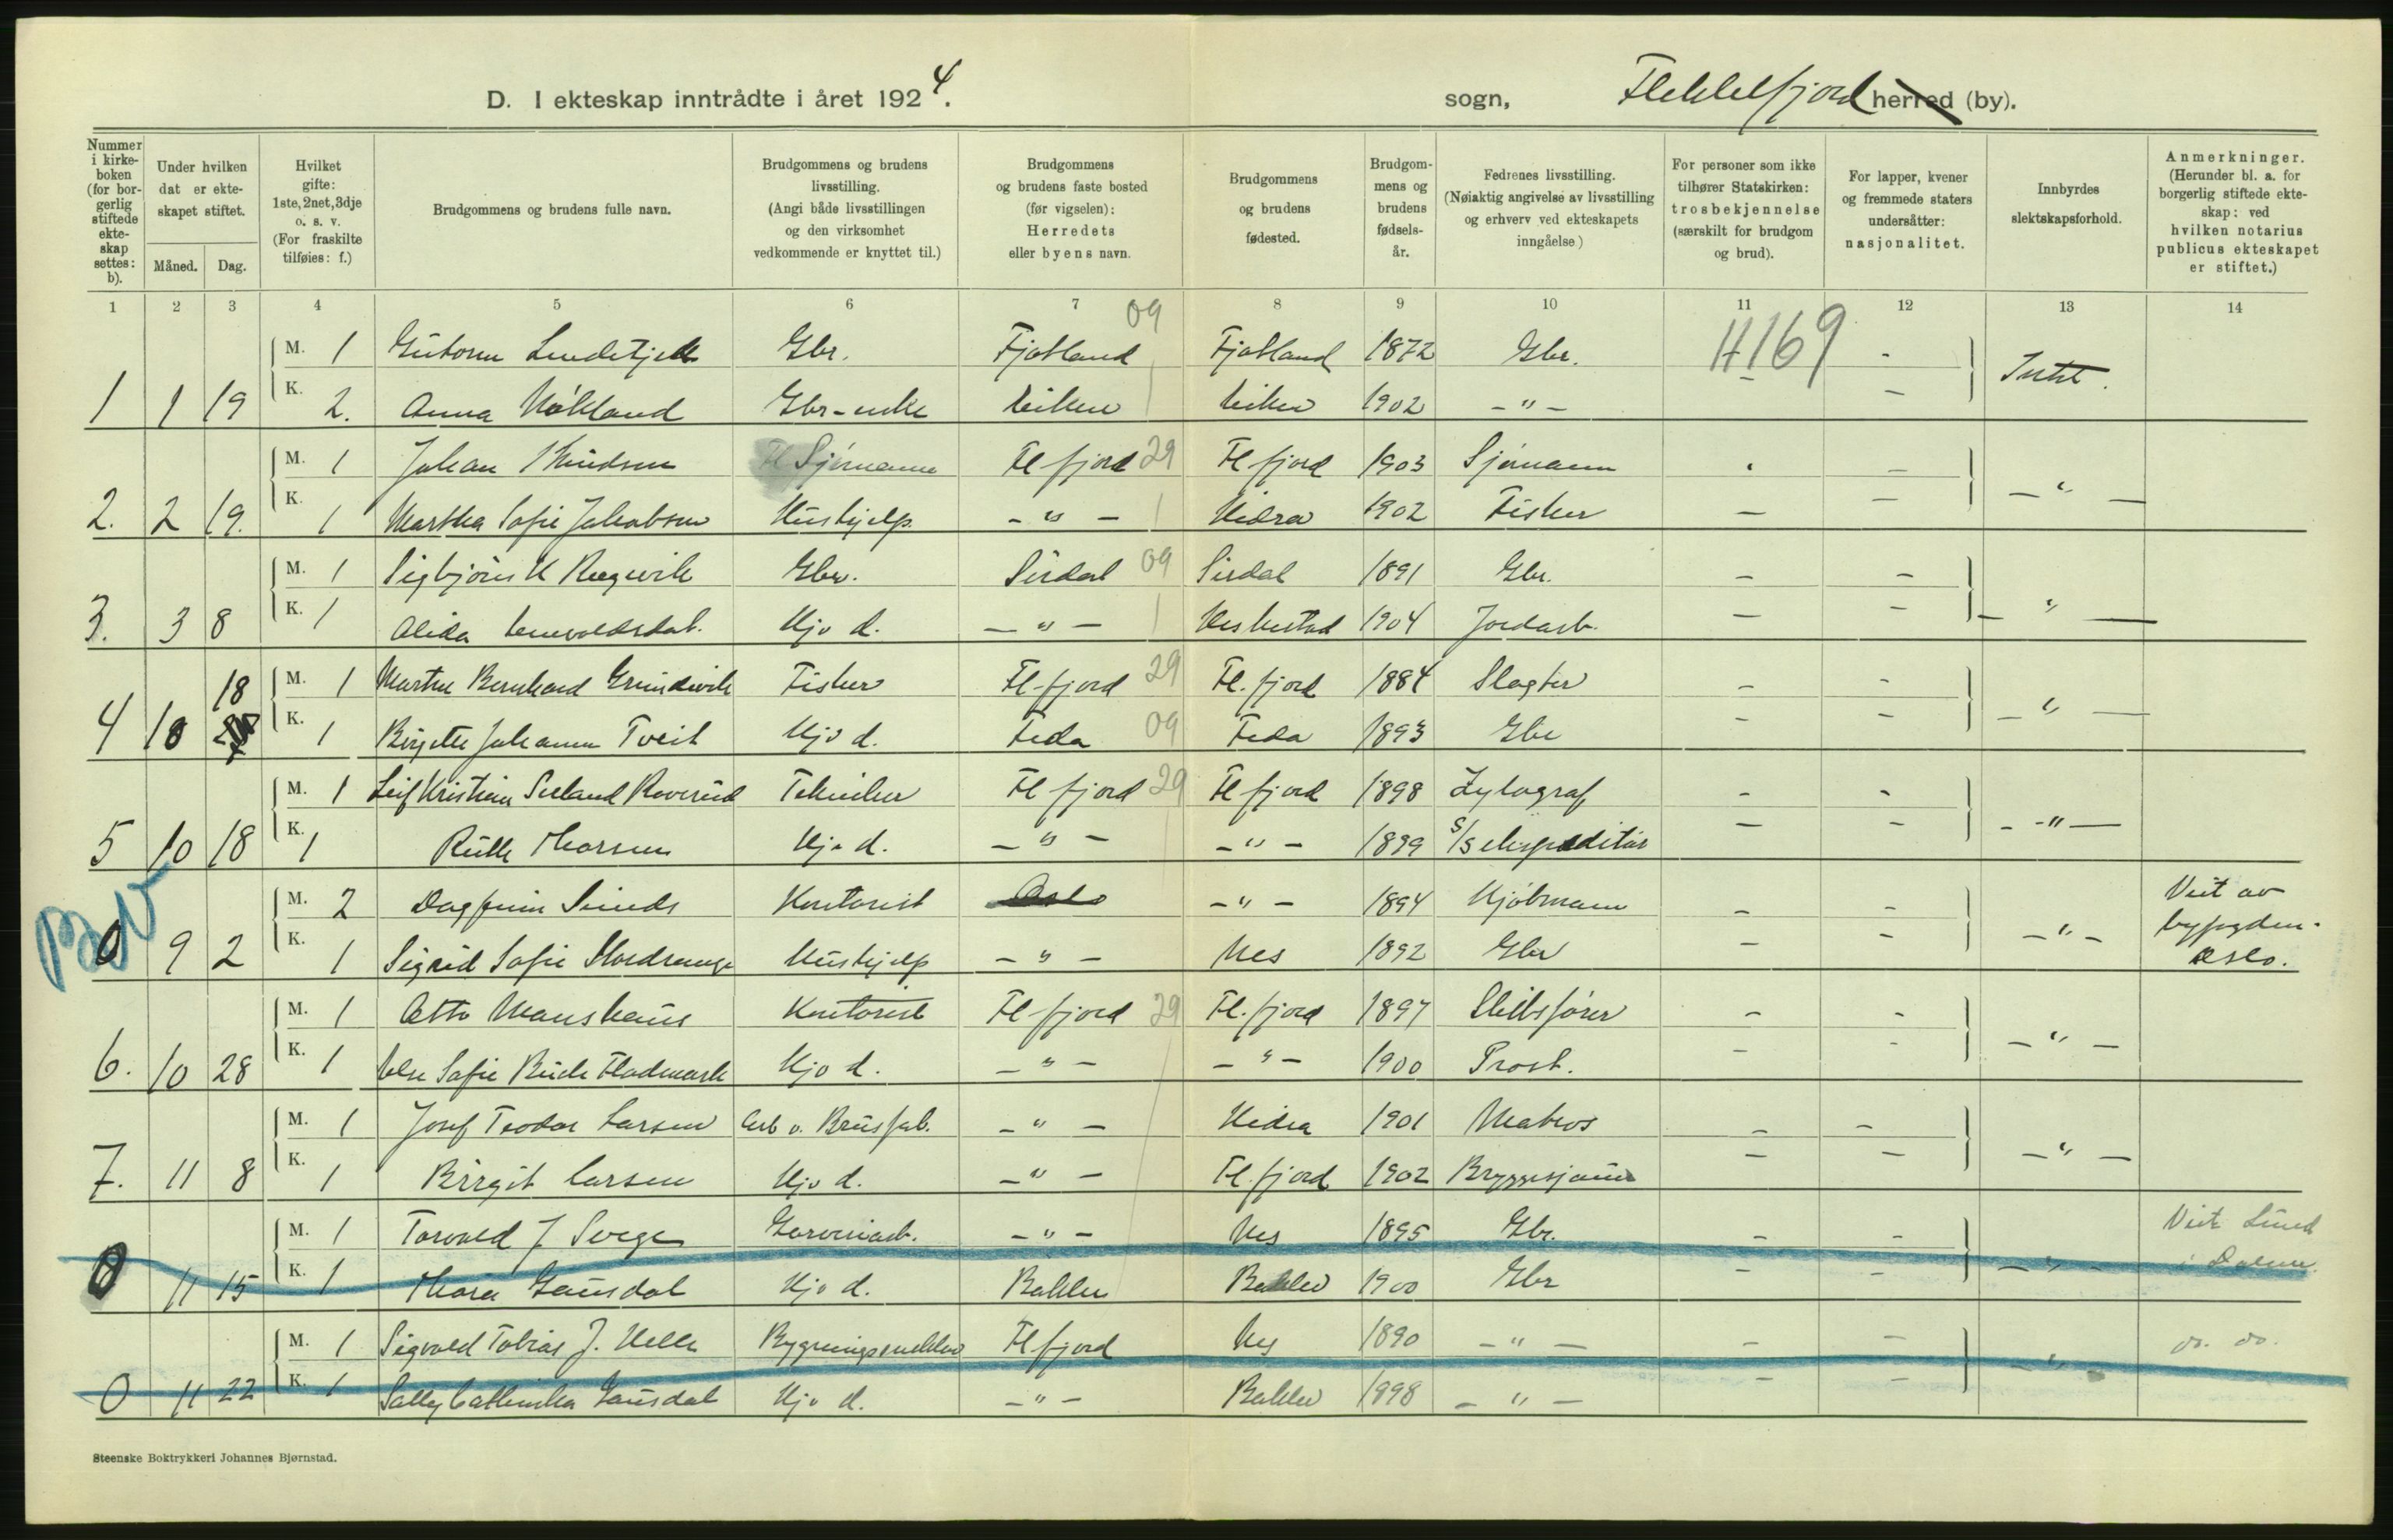 D. I ekteskap inntrådte i året 1924.
sogn, Flekkefjord herred (by).
Nummer i kirkeboken (for borgerlig stiftede ekteskap settes: b).
Under hvilken dat er ekteskapet stiftet.
Måned. Dag.
Hvilket gifte: 1ste, 2net, 3dje o. s. v. (For fraskilte tilføies: f.)
Brudgommens og brudens fulle navn.
Brudgommens og brudens livsstilling. (Angi både livsstillingen og den virksomhet vedkommende er knyttet til.)
Brudgommens og brudens faste bosted (før vigselen): Herredets eller byens navn.
Brudgommens og brudens fødested.
Brudgommens og brudens fødselsår.
Fedrenes livsstilling. (Nøiaktig angivelse av livsstilling og erhverv ved ekteskapets inngåelse)
For personer som ikke tilhører Statskirken: trosbekjennelse (særskilt for brudgom og brud).
For lapper, kvener og fremmede staters undersåtter: nasjonalitet.
Innbyrdes slektskapsforhold.
Anmerkninger. (Herunder bl. a. for borgerlig stiftede ekteskap: ved hvilken notarius publicus ekteskapet er stiftet.)
1 2 3 4 5 6 7 8 9 10 11 12 13 14
M. 1 Gbr. Fjotland 09 Fjotland 1872 Gbr. H169 -
1 1 19 K. 2. Anna Gbr-enke 1902 -"- - Intet.
M. 1 Johan Knudsen Sjømann Fl fjord 29 Fl fjord 1903 Sjømann -
2. 2 19. K. 1 Martha Sofie Jakobsen Hushjelp -"- Hidra 1902 Fisker - - -"-
M. 1 Sigbjørn K Gbr. Sirdal 09 Sirdal 1891 Gbr. - -
3. 3 8 K. 1 Alida Hjv d. -"- Heskestad 1904 Jordarb. - - -"-
18 M. 1 Bernhard Fisker Fl-fjord 29 Fl.fjord 1884 Slagter - -
4 10 K. 1 Tveit Hjv d. Feda 09 Feda 1893 Gbr - - -"-
M. 1 Leif Kristian Seland Roverud Tekniker Fl fjord 29 Fl fjord 1898 Xylograf - -
5 10 18 K. 1 Ruth Hjv d. -"- -"- 1899 S/S ekspeditør - - -"-
M. 2 Dagfinn Sinds Kontorist Oslo -"- 1894 Kjøbmann - - Viet av
0 9 2 K. 1 Sigrid Sofie Hushjelp -"- Nes 1892 Gbr - - -"- byfogden.
Oslo.
M. 1 Otto Monshaus Kontorist Fl-fjord 29 Fl.fjord 1897 Skibsfører - -
6. 10 28 K. 1 Sofie Flodmark Hjv d. -"- -"- 1900 Prost. - - -"-
M. 1 Josef Teodor Larsen Arb v. Brusfab. -"- Hidra 1901 Matros - -
7. 11 8 K. 1 Birgit Larsen Hjv d. -"- Fl.fjord 1902 Bryggesjauer - - -"-
M. 1 Torvald J Svege Garveriarb. -"- Nes 1895 Gbr. - - Viet Lund
0 11 15 K. 1 Thora Gausdal Hjv d. Bakke Bakke 1900 Gbr - - -"- i Dalene.
M. 1 Sigvald Tobias J. Bygningssnekker Fl fjord Nes 1890 -"- - - do. do.
0 11 22 K. 1 Gausdal Hjv d. -"- Bakke 1898 -"- - - -"-
Steenske Boktrykkeri Johannes Bjørnstad.